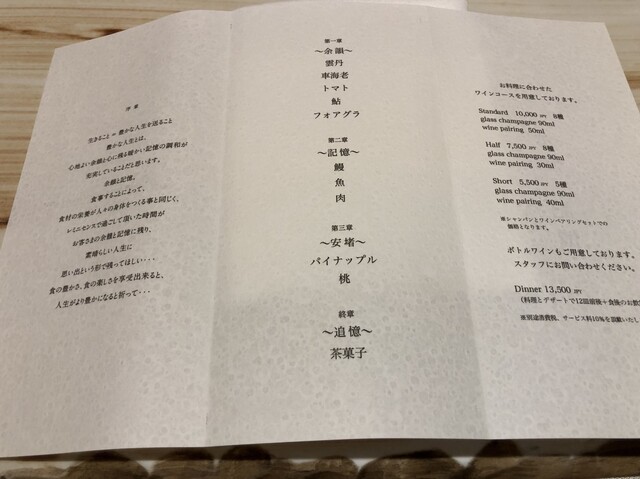 序章
生きること = 豊かな人生を送ること
豊かな人生とは、
心地よい余韻と心に残る暖かい記憶の調和が
充実していることだと思います。
余韻と記憶。
食事することによって、
食材の栄養が人々の身体をつくる事と同じく、
レミニセンスで過ごして頂いた時間が
お客さまの余韻と記憶に残り、
素晴らしい人生に
思い出という形で残ってほしい・・・
食の豊かさ、食の楽しさを享受出来ると、
人生がより豊かになると祈って・・・
第一章
～余韻～
雲丹
車海老
トマト
鮎
フォアグラ
第二章
～記憶～
鰻
魚
肉
第三章
～安堵～
パイナップル
桃
終章
～追憶～
茶菓子
お料理に合わせた
ワインコースを用意しております。
Standard 10,000 JPY 8種
glass champagne 90ml
wine pairing 50ml
Half 7,500 JPY 8種
glass champagne 90ml
wine pairing 30ml
Short 5,500 JPY 5種
glass champagne 90ml
wine pairing 40ml
※シャンパンとワインペアリングセットでの
価格となります。
ボトルワインもご用意しております。
スタッフにお問い合わせください。
Dinner 13,500 JPY
(料理とデザートで12皿前後＋食後のお飲
※別途消費税、サービス料10%を頂戴いたし